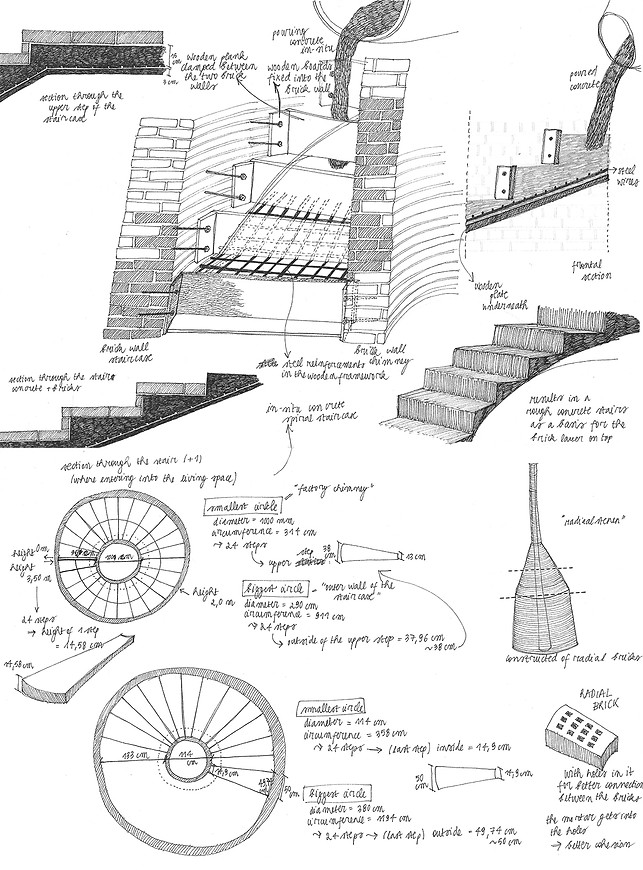 pouring
concrete
in-situ
wooden plank
clamped between
the two brick
walls
wooden boards
fixed into the
brick wall
section through the
upper step of the
staircase
3 cm
poured
concrete
steel
wires
frontal
section
wooden
plate
underneath
brick wall
staircase
brick wall
chimney
steel reinforcements
in the wooden framework
section through the stairs
concrete + bricks
in-situ concrete
spiral staircase
results in a
rough concrete stairs
as a basis for the
brick layer on top
section through the stair (+1)
(where entering into the living space)
smallest circle = "factory chimney"
diameter = 1000 mm
circumference = 314 cm
→ 24 steps
→ upper step
38
cm
13 cm
height 0 m
height
3,50 m
24 steps
→ height of 1 step
= 14,58 cm
height
2,0 m
biggest circle = "outer wall of the
staircase"
diameter = 290 cm
circumference = 911 cm
→ 24 steps
→ outside of the upper step = 37,96 cm
~38 cm
14,58 cm
constructed of radial bricks
smallest circle
diameter = 114 cm
circumference = 358 cm
→ 24 steps → (last step) inside = 14,9 cm
133 cm
114
cm
14,9 cm
50 cm
50
cm
14,9 cm
biggest circle
diameter = 380 cm
circumference = 1194 cm
→ 24 steps → (last step) outside = 49,74 cm
~50 cm
RADIAL
BRICK
with holes in it
for better connection
between the bricks
the mortar gets into
the holes
→ better cohesion